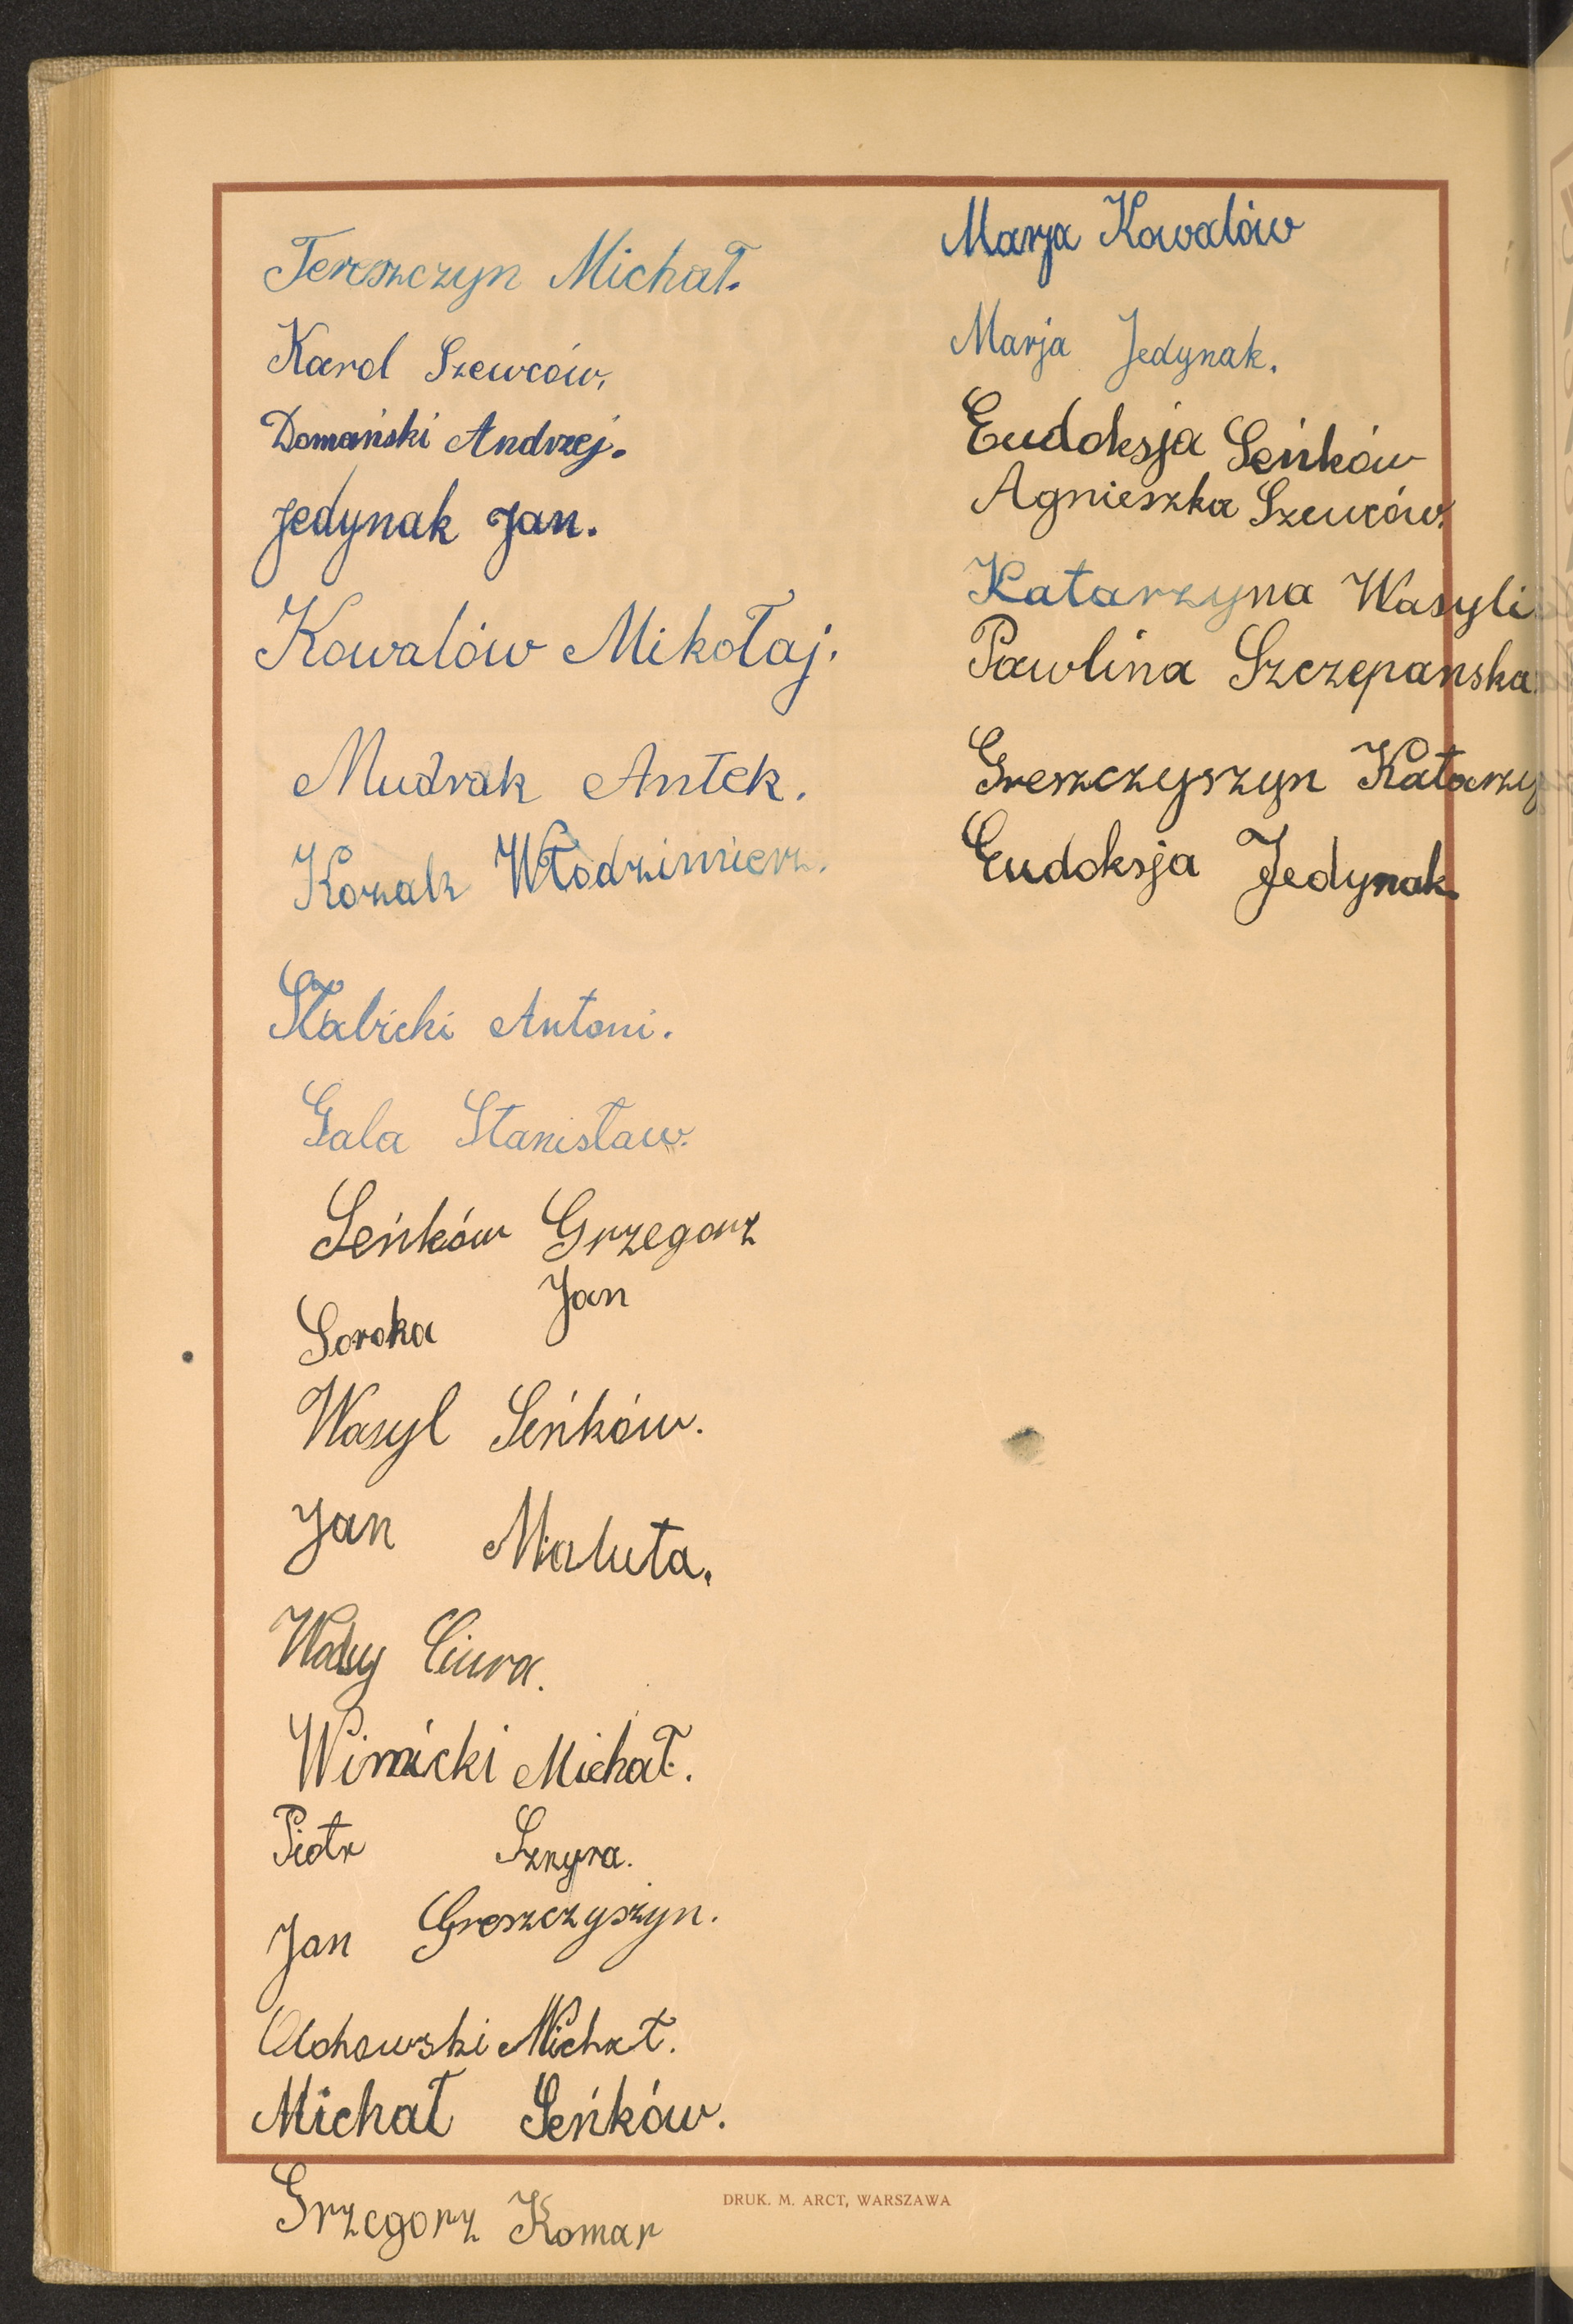 Tereszczyn Michał.
Karol Szewców.
Domański Andrzej.
Jedynak Jan.
Kowalów Mikołaj.
Mudrak Antek.
Kozak Włodzimierz.
Słabicki Antoni.
Gala Stanisław.
Seńków Grzegorz
Soroka Jan
Wasyl Seńków.
Jan Maluta.
Ciura.
Winnicki Michał.
Piotr Sznyra.
Jan Greszczyszyn.
Olchowski Michał.
Michał Seńków.
Grzegorz Komar
Marja Kowalów
Marja Jedynak.
Eudoksja Seńków
Agnieszka Szewców.
Katarzyna Wasyli
Pawlina Szczepanska
Greszczyszyn Katarzy
Eudoksja Jedynak.
DRUK. M. ARCT, WARSZAWA